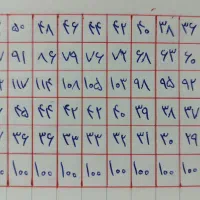 ۵۰ ۴۸ ۴۶ ۴۴ ۴۲ ۴۰ ۳۸ ۳۶
۹۱ ۸۶ ۷۹ ۷۶ ۷۲ ۶۸ ۶۳ ۶۰
۱۱۷ ۱۱۴ ۱۰۸ ۱۰۵ ۱۰۲ ۹۸ ۹۵ ۹۲
۴۵ ۴۴ ۴۲ ۴۲ ۴۰ ۳۹ ۳۸ ۳۷
۳۶ ۳۴ ۳۳ ۳۲ ۳۱ ۳۰ ۲۹
۱۰۰ ۱۰۰ ۱۰۰ ۱۰۰ ۱۰۰ ۱۰۰ ۱۰۰ ۱۰۰